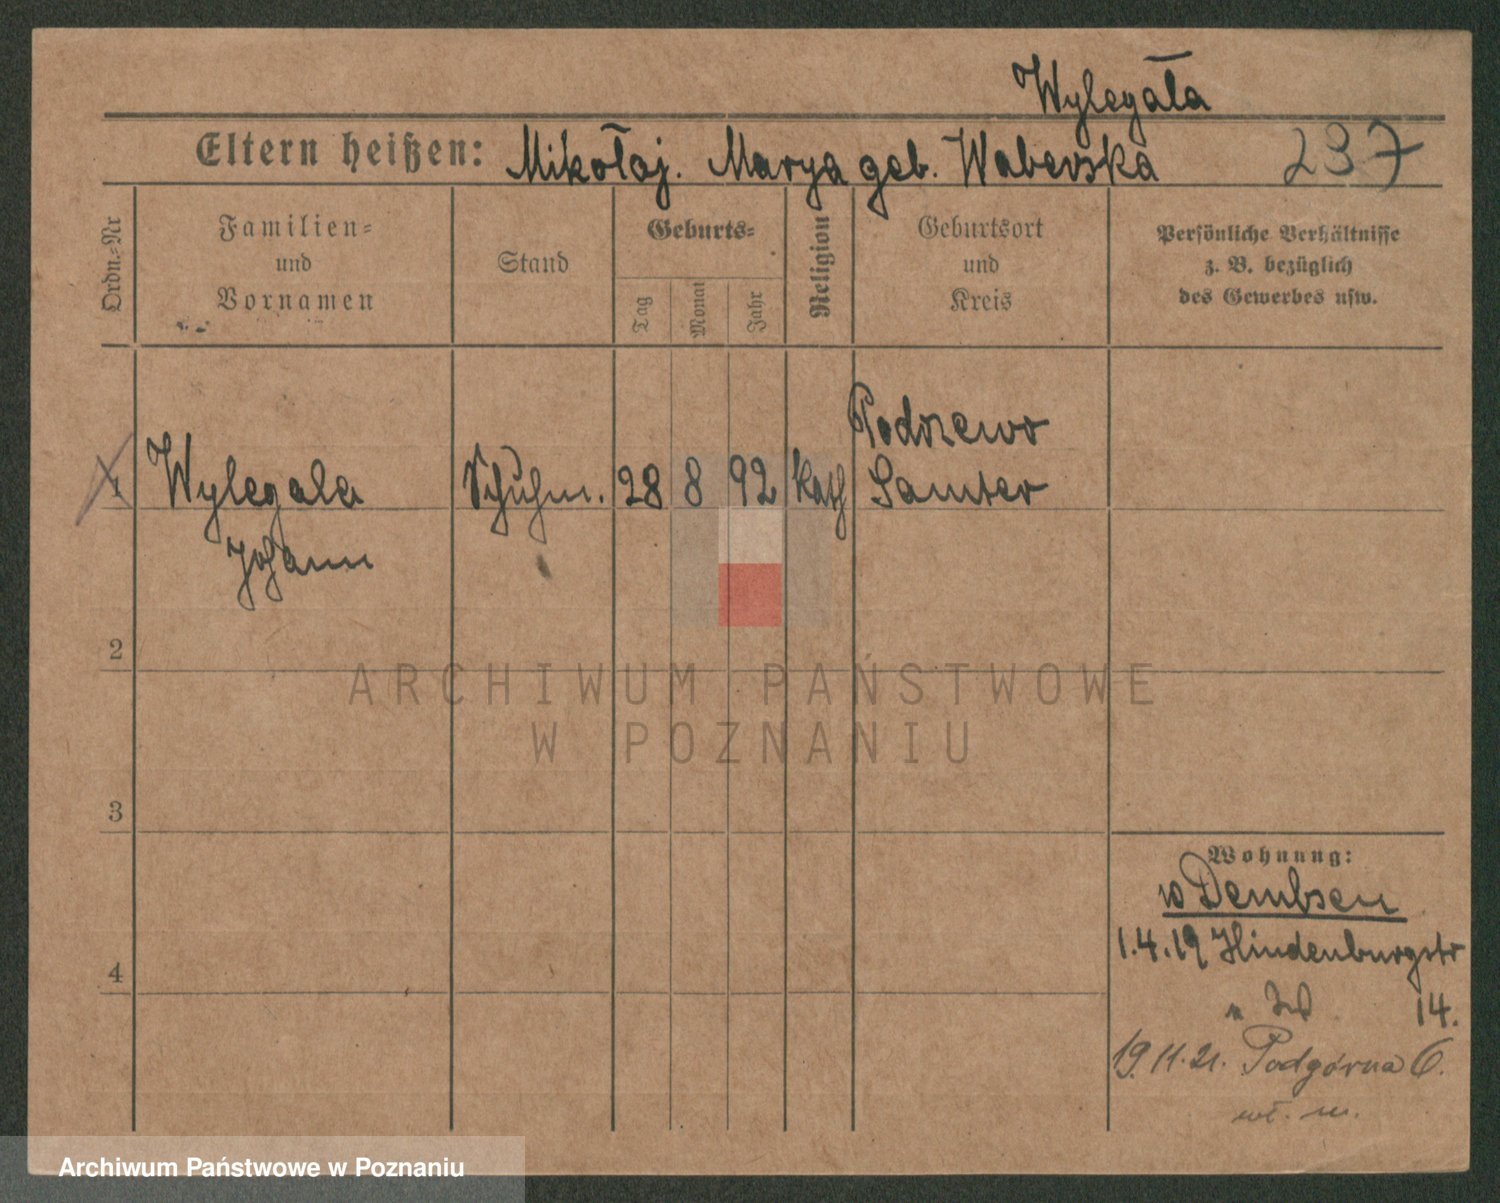 Wylegała
Eltern heißen: Mikołaj. Marya geb. Waberska 237
Ordn.-Nr
Familien-
und
Vornamen
Stand
Geburts-
Tag
Monat
Jahr
Religion
Geburtsort
und
Kreis
Persönliche Verhältnisse
z. B. bezüglich
des Gewerbes usw.
Podrzewo
1 Wylegala Schuhm. 28 8 92 Kath Samter
Johann
2
3
4
Wohnung:
Dembsen
1.4.19 Hindenburgstr
14.
19.11.21. Podgórna 6.
ARCHIWUM PAŃSTWOWE
W POZNANIU
Archiwum Państwowe w Poznaniu